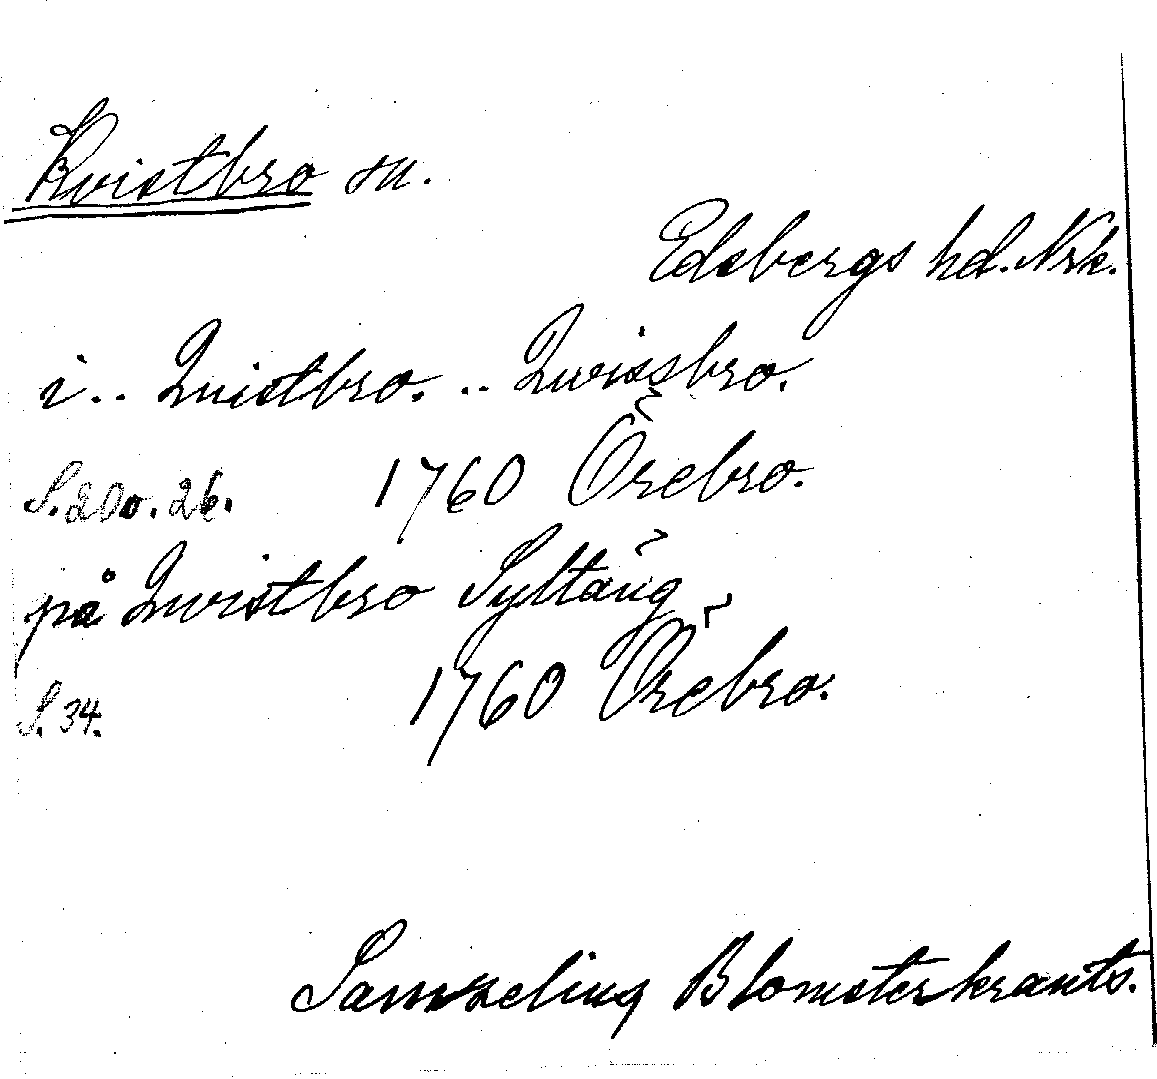 Kvistbro sn.
Edsbergs hd. Nrk.
i.. Quistbro. .. Qwissbro.
S. 200. 26. 1760 Örebro.
på Qwistbro Syltäug
S. 34. 1760 Örebro.
Samzeliug Blomsterkrants.